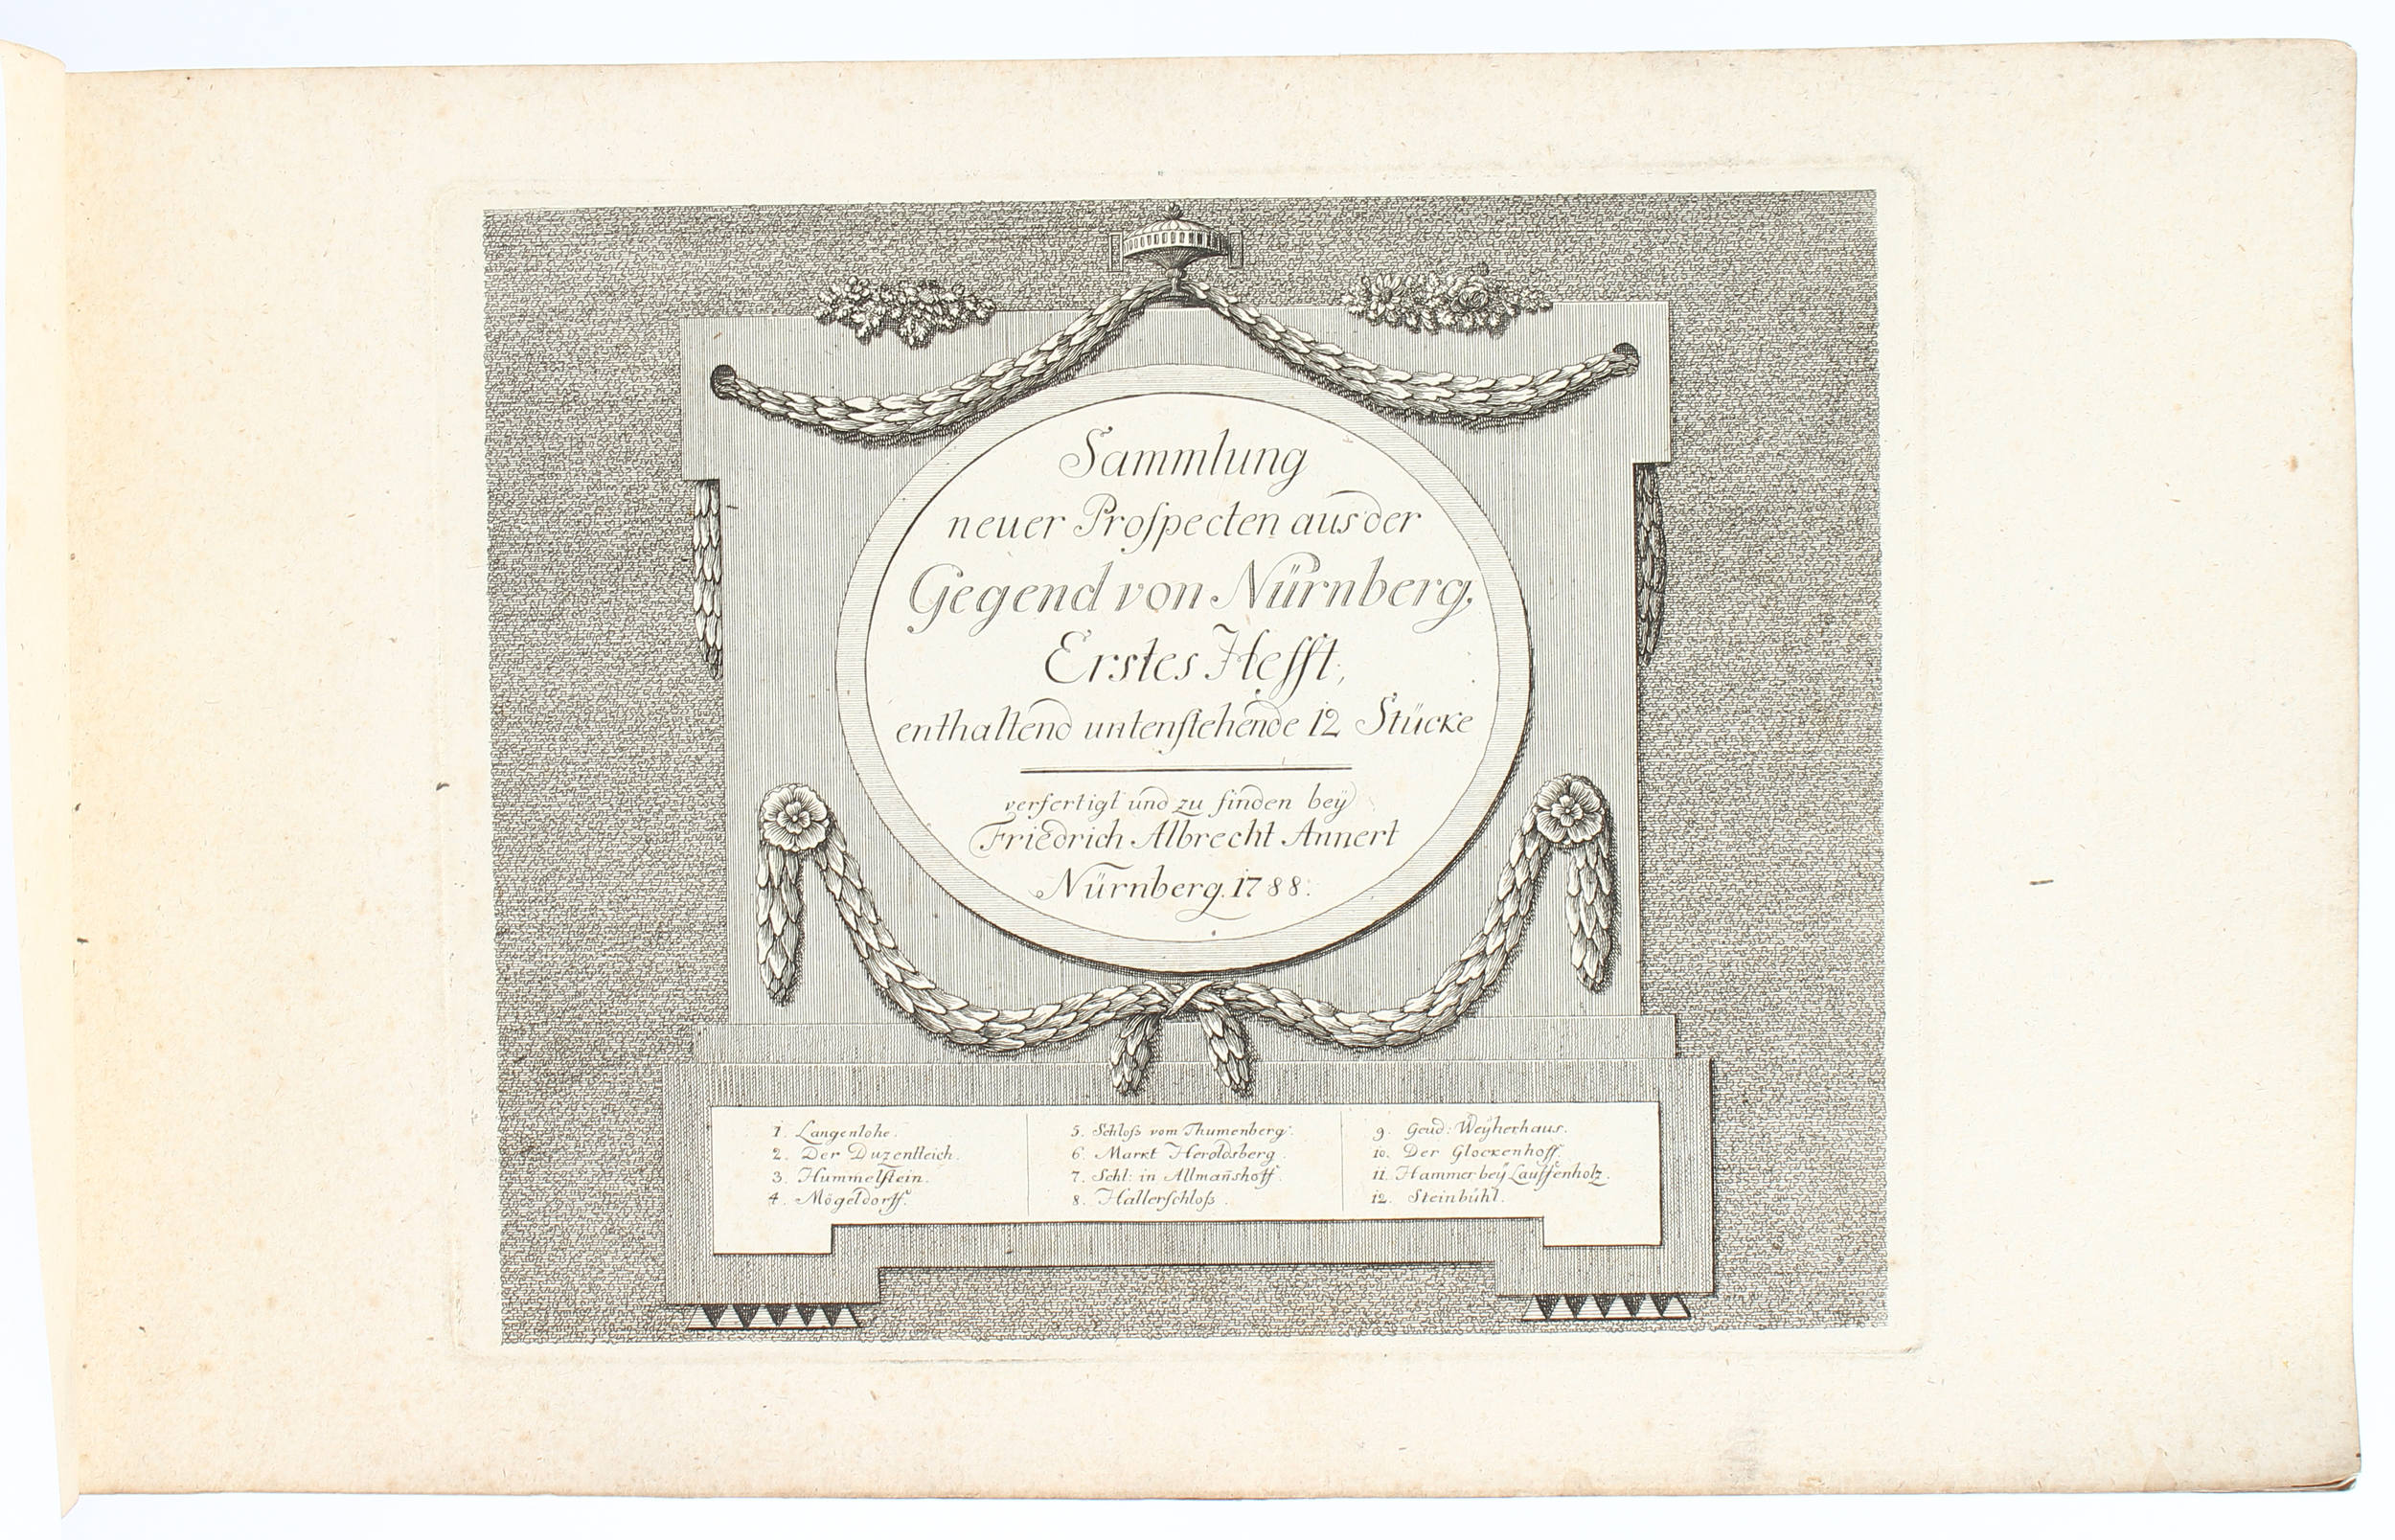 Sammlung
neuer Proſpecten aus der
Gegend von Nürnberg,
Erstes Hefft,
enthaltend untenſtehende 12 Stücke
verfertigt und zu finden beÿ
Friedrich Albrecht Annert
Nürnberg. 1788.
1. Langenlohe.
2. Der Duzentteich.
3. Hummelſtein.
4. Mögeldorff.
5. Schloß vom Thumenberg.
6. Markt Heroldsberg.
7. Schl: in Allman̄shoff.
8. Hallerſchloß.
9. Geud: Weÿherhaus.
10. Der Glockenhoff.
11. Hammer beÿ Lauffenholz.
12. Steinbühl.